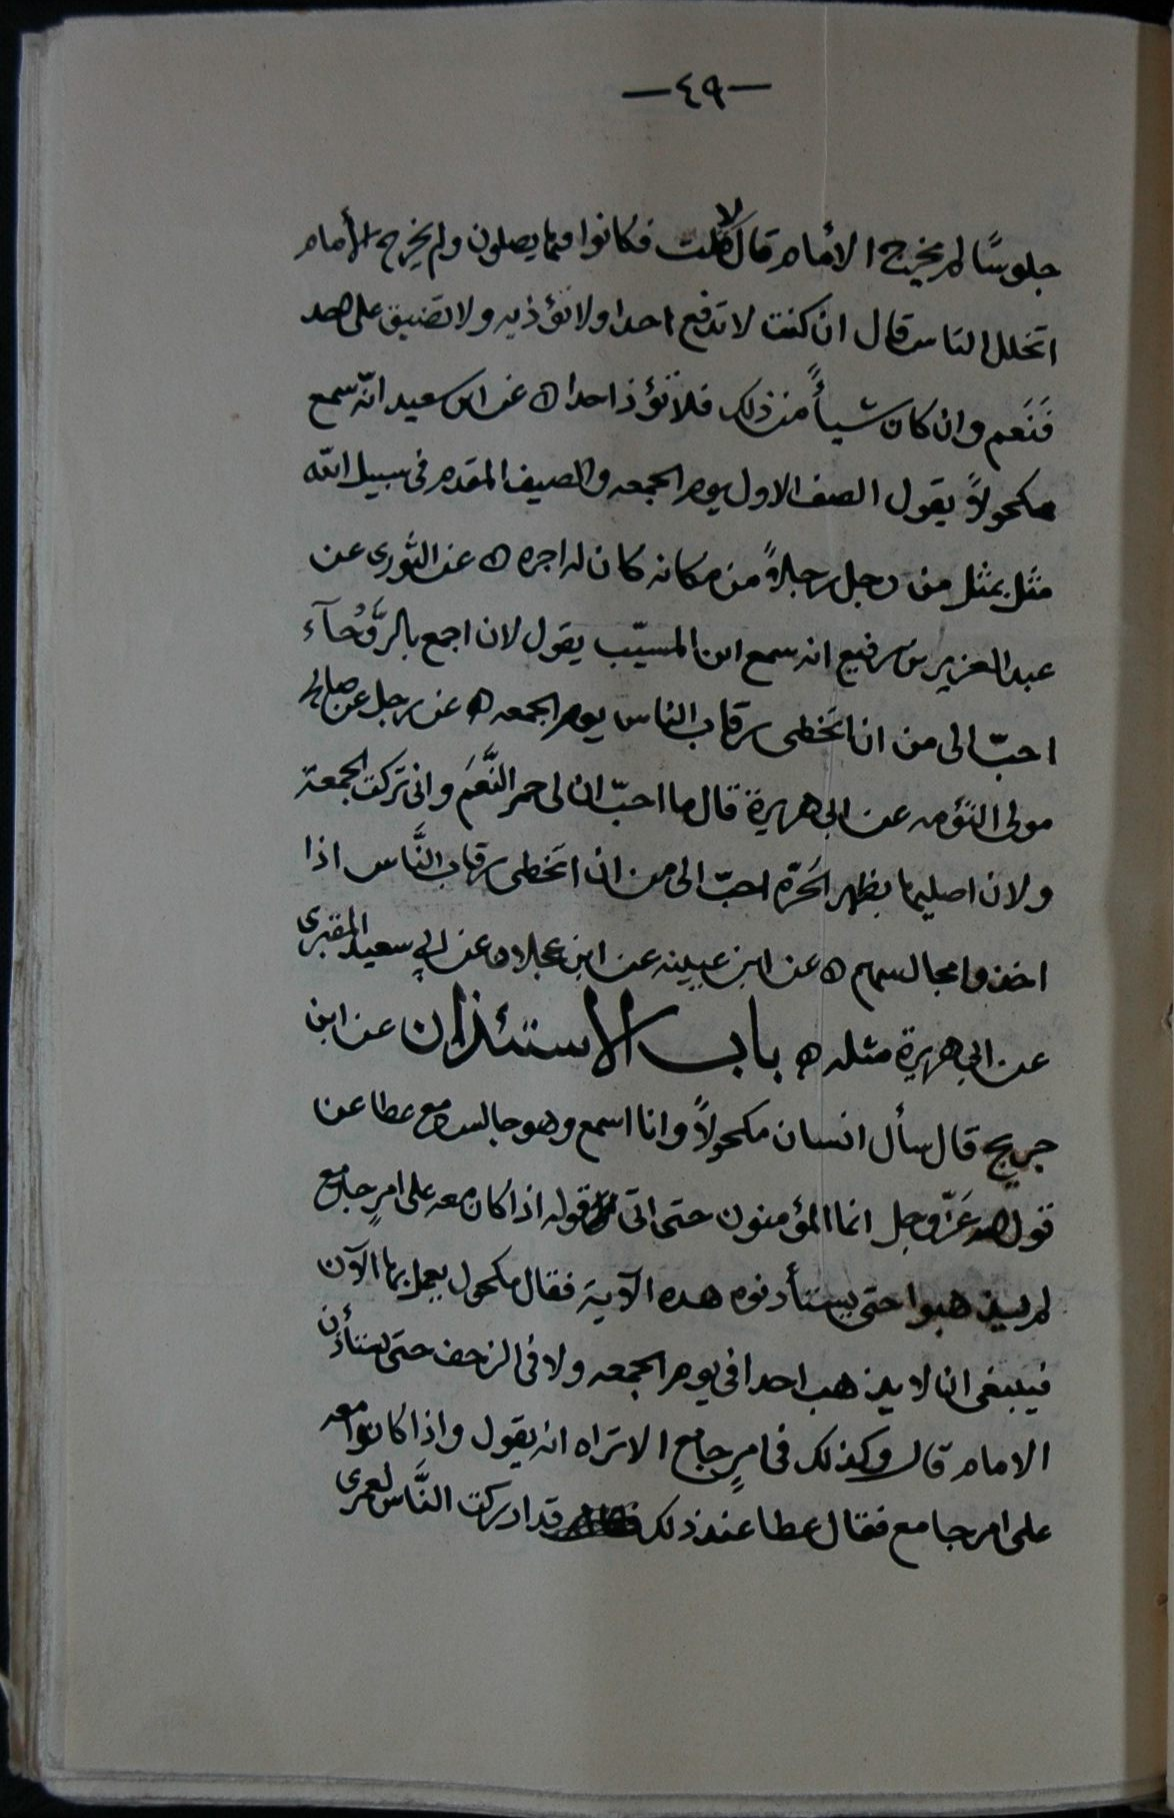 —٤٩—
جلوسًا لم يخرج الامام قال لا قلت فكانوا مما يصلون ولم يخرج الأمام
اتخلل الناس قال ان كنت لا تدفع احدا ولا تؤذيه ولا تضيق على احد
فَنَعم وان كان شيأً من ذلك فلا تؤذ احدا ه عن ابن سعيد انّه سمع
مكحولاً يقول الصف الاول يوم الجمعه والصيف المقدم فى سبيل الله
مثل بمثل من رجل رجلاً من مكانه كان له اجره ه عن الثورى عن
عبد العزيز بن رفيع انه سمع ابن المسيّب يقول لان اجمع بالرَّوْحآء
احبّ الى من ان اتخطى رقاب الناس يوم الجمعه ه عن رجل عن صالح
مولى التؤمه عن ابى هريرة قال ما احبّ ان لى حمر النَّعَم وانى تركت الجمعة
ولان اصليها بظهر الحَرّه احبّ الى من ان اتخطى رقاب النَّاس اذا
اخذوا مجالسهم ه عن ابن عيينه عن ابن عجلان عن ابي سعيد المقبرى
عن ابي هريرة مثله ه باب الاستئذان عن ابن
جريج قال سأل انسان مكحولاً وانا اسمع وهو جالس مع عطا عن
قول الله عَزّ وجل انما المؤمنون حتى اتى قوله اذا كان معه على امرٍ جامع
لم يذهبوا حتى يستأذنوه هذه الآية فقال مكحول يعمل بها الآن
فينبغى ان لا يذهب احدا فى يوم الجمعه ولا فى الزحف حتى يستأذن
الامام قال وكذلك فى امرٍ جامع الا تراه انه يقول واذا كانوا معه
على امر جامع فقال عطا عند ذلك قد ادركت النَّاس لعمرى